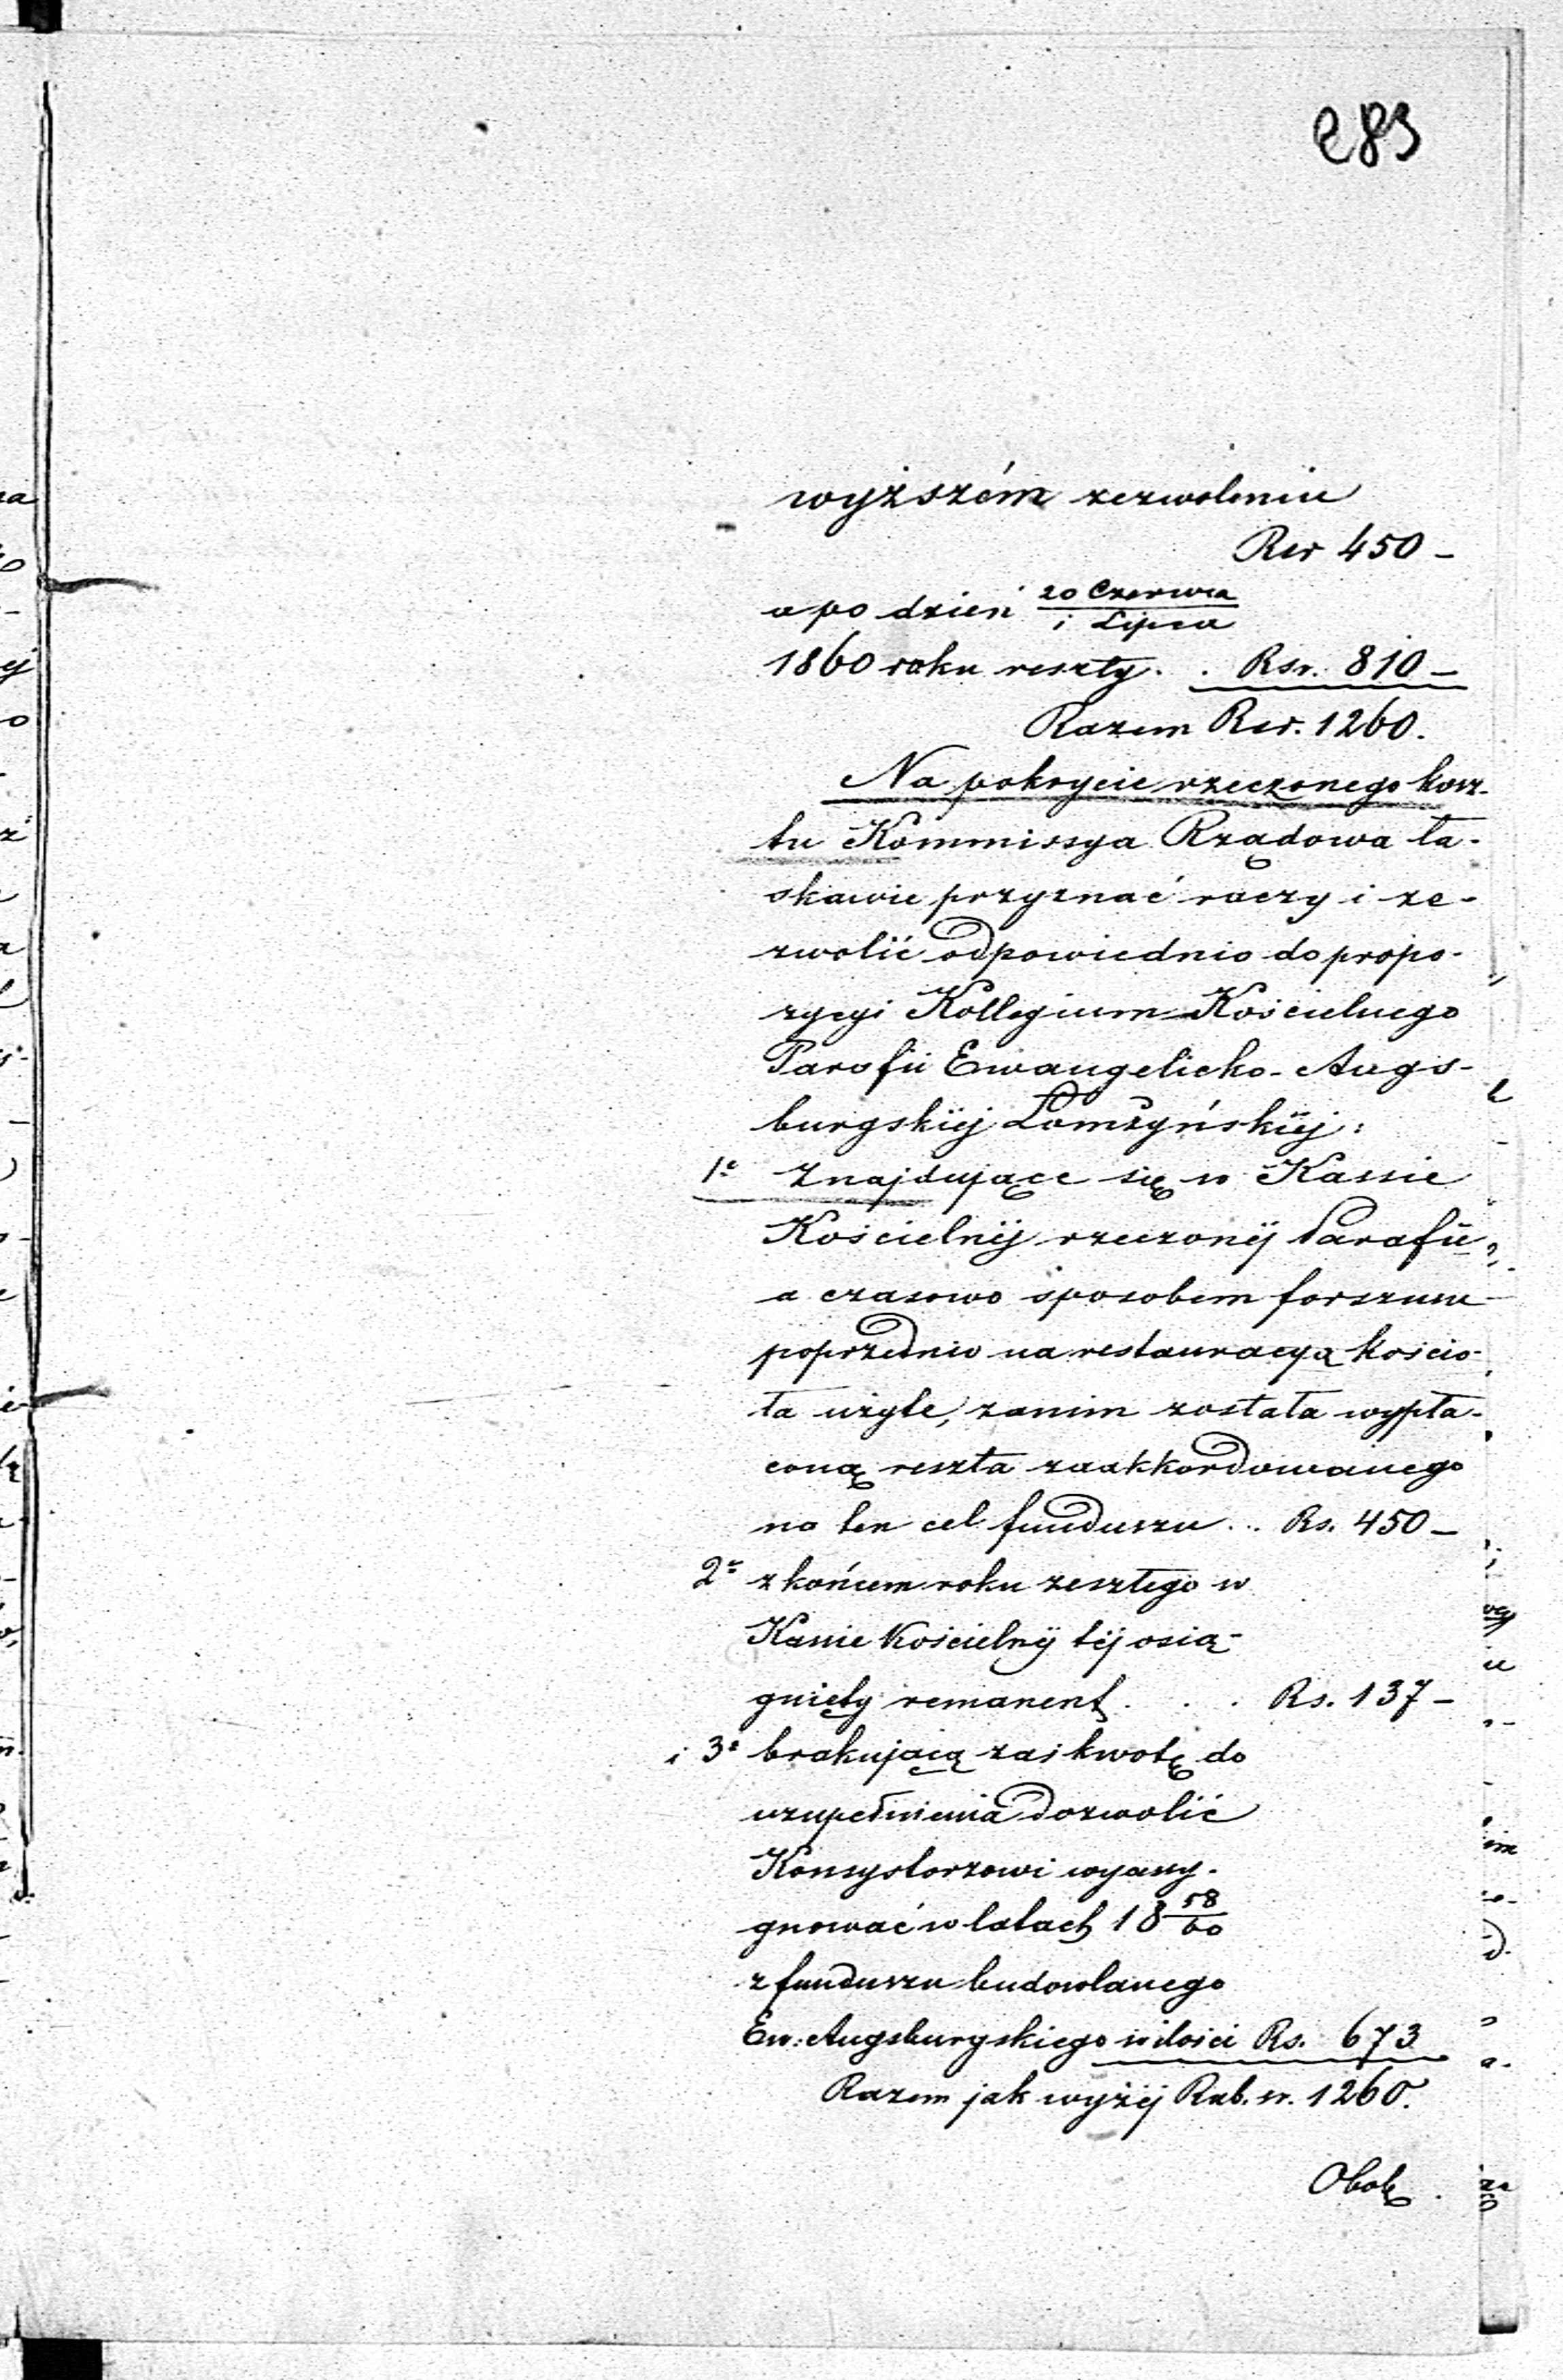 283
wyższém zezwoleniu
Rsr 450 -
a po dzień 20 Czerwca / 1 Lipca
1860 roku reszty . . Rsr. 810 -
Razem Rsr. 1260.
Na pokrycie rzeczonego kosz-
tu Kommissya Rządowa ła-
skawie przyznać raczy i ze-
zwolić odpowiednio do propo-
zycyi Kollegium Kościelnego
Parafii Ewangelicko-Augs-
burgskiéj Łomżyńskiéj:
1e Znajdujące się w Kassie
Kościelnéj rzeczonéj Parafii,
a czasowo sposobem forszusu
poprzednio na restauracyą kościo-
ła użyte, zanim została wypła-
coną reszta zaakkordowanego
na ten cel funduszu... Rs. 450 -
2e z końcem roku zeszłego w
Kassie Kościelnéj téj osią-
gnięty remanent . . . Rs. 137 -
i 3e brakującą zaś kwotę do
uzupełnienia dozwolić
Konsystorzowi wyasy-
gnować w latach 18 58/60
z funduszu budowlanego
Ew: Augsburgskiego w ilości Rs. 673
Razem jak wyżéj Rub. sr. 1260.
Obok